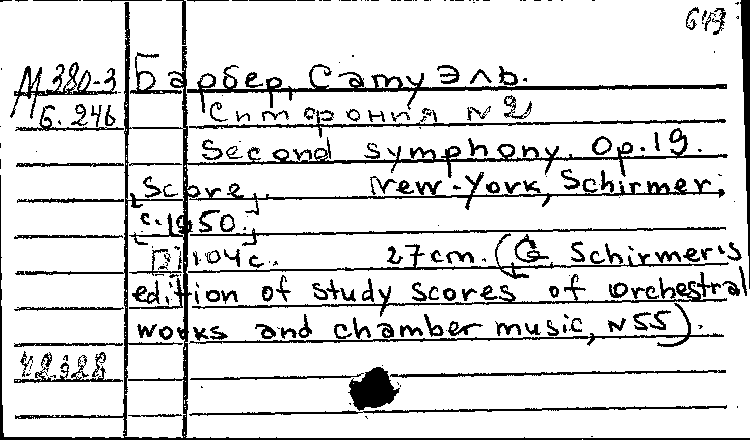 649
М 380-3 Барбер, Сатуэль.
Б. 246 Симфония N 2
Second symphony. Op. 19.
[Score]. New-York, Schirmer,
[c. 1950.]
[2] 104 с. 27 cm. (G. Schirmer's
edition of study scores of orchestral
works and chamber music, N 55).